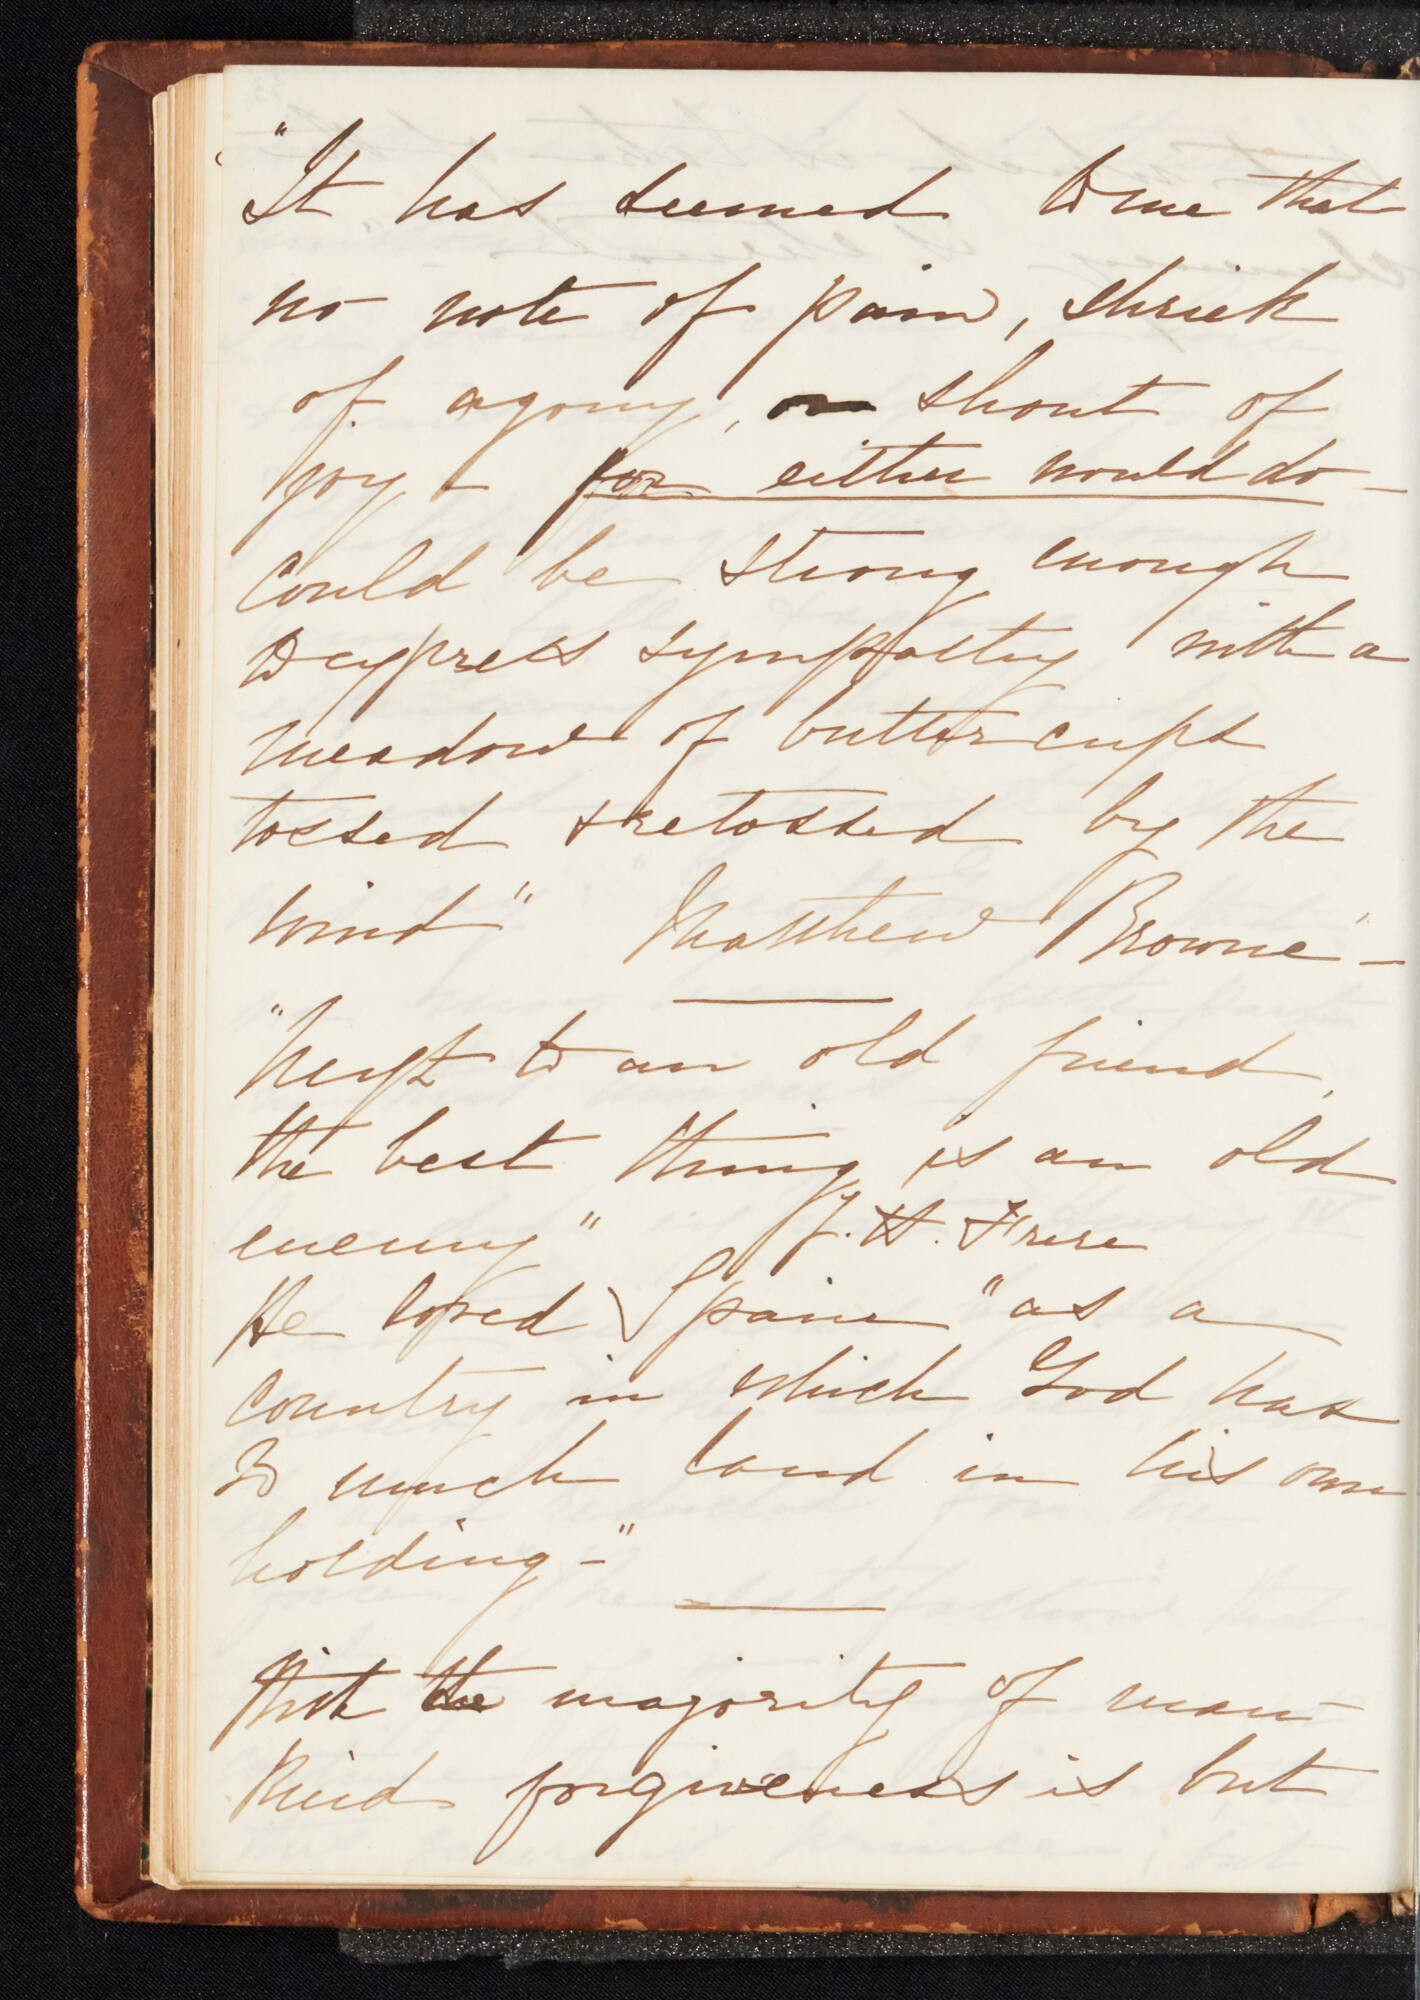 "It has seemed to me that
no note of pain, shriek
of agony, or shout of
joy - for either would do -
could be strong enough
to express sympathy with a
meadow of buttercups
tossed & retossed by the
wind" Matthew Browne" -
"Next to an old friend,
the best thing is an old
enemy" J. H. Frere
He loved Spain "as a
country in which God has
so much land in his own
holding -"
With the majority of man
kind forgiveness is but